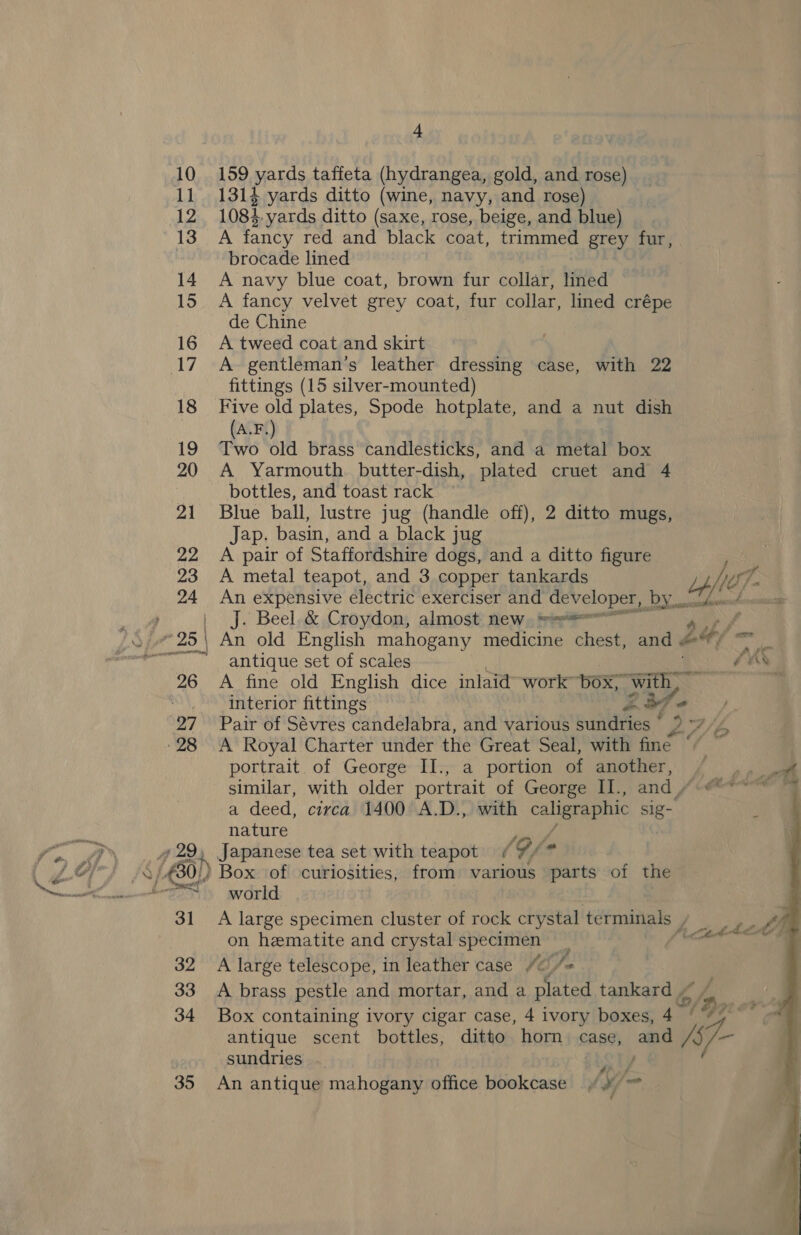 4
10 159 yards taffeta (hydrangea, gold, and rose)
11 131½ yards ditto (wine, navy, and rose)
12 108½ yards ditto (saxe, rose, beige, and blue)
13 A fancy red and black coat, trimmed grey fur,
brocade lined
14 A navy blue coat, brown fur collar, lined
15 A fancy velvet grey coat, fur collar, lined crépe
de Chine
16 A tweed coat and skirt
17 A gentleman's leather dressing case, with 22
fittings (15 silver-mounted)
18 Five old plates, Spode hotplate, and a nut dish
(A.F.)
19 Two old brass candlesticks, and a metal box
20 A Yarmouth butter-dish, plated cruet and 4
bottles, and toast rack
21 Blue ball, lustre jug (handle off), 2 ditto mugs,
Jap. basin, and a black jug
22 A pair of Staffordshire dogs, and a ditto figure
23 A metal teapot, and 3 copper tankards
24 An expensive electric exerciser and developer, by
J. Beel & Croydon, almost new
25 An old English mahogany medicine chest, and
antique set of scales
26 A fine old English dice inlaid work box, with
interior fittings
27 Pair of Sévres candelabra, and various sundries
28 A Royal Charter under the Great Seal, with fine
portrait of George II., a portion of another,
similar, with older portrait of George II., and
a deed, circa 1400 A.D., with caligraphic sig-
nature
29 Japanese tea set with teapot
30 Box of curiosities, from various parts of the
world
31 A large specimen cluster of rock crystal terminals
on hæmatite and crystal specimen
32 A large telescope, in leather case
33 A brass pestle and mortar, and a plated tankard
34 Box containing ivory cigar case, 4 ivory boxes, 4
antique scent bottles, ditto horn case, and
sundries
35 An antique mahogany office bookcase